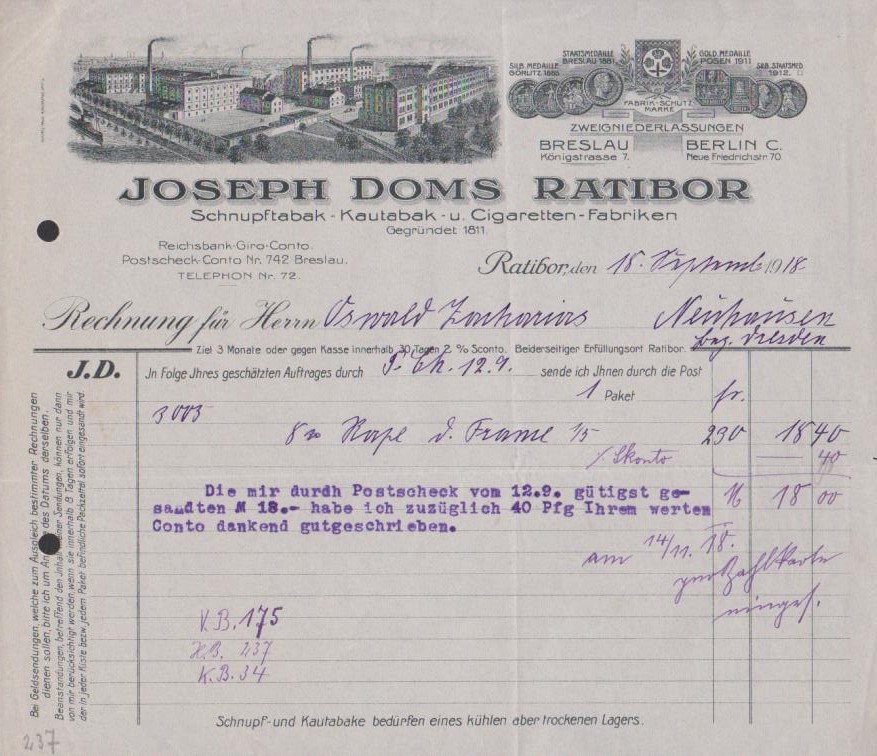 SILB. MEDAILLE
GÖRLITZ 1885
STAATSMEDAILLE
BRESLAU 1881
GOLD. MEDAILLE
POSEN 1911
SILB. STAATSMED.
1912.
FABRIK-SCHUTZ
MARKE
ZWEIGNIEDERLASSUNGEN
BRESLAU BERLIN C.
Königstrasse 7. Neue Friedrichstr. 70.
JOSEPH DOMS RATIBOR
Schnupftabak-Kautabak-u. Cigaretten-Fabriken
Gegründet 1811.
Reichsbank-Giro-Conto.
Postscheck-Conto Nr. 742 Breslau.
TELEPHON Nr. 72.
Ratibor, den 18. Septemb 1918.
Rechnung für Herrn Oswald Zacharias Neuhausen
Bez. Dresden
Ziel 3 Monate oder gegen Kasse innerhalb 30 Tagen 2 % Sconto. Beiderseitiger Erfüllungsort Ratibor.
J.D. In Folge Ihres geschätzten Auftrages durch P. Ch. 12.9. sende ich Ihnen durch die Post
1 Paket fr.
3003
8 Rape d. 1/5 230 18 40
% Skonto — 40
M 18 00
Die mir durdh Postscheck vom 12.9. gütigst ge-
sandten M 18.- habe ich zuzüglich 40 Pfg Ihrem werten
Conto dankend gutgeschrieben.
am 14/11. 18.
zur Zahlkarte
eingef.
V.B. 175
H.B. 237
K.B. 34
Schnupf- und Kautabake bedürfen eines kühlen aber trockenen Lagers.
Bei Geldsendungen, welche zum Ausgleich bestimmter Rechnungen
dienen sollen, bitte ich um An des Datums derselben.
Beanstandungen, betreffend den Inhalt ener Sendungen, können nur dann
von mir berücksichtigt werden, wenn sie innerhalb 8 Tagen erfolgen und mir
der in jeder Kiste bezw. jedem Paket befindliche Packzettel sofort eingesandt wird.
237